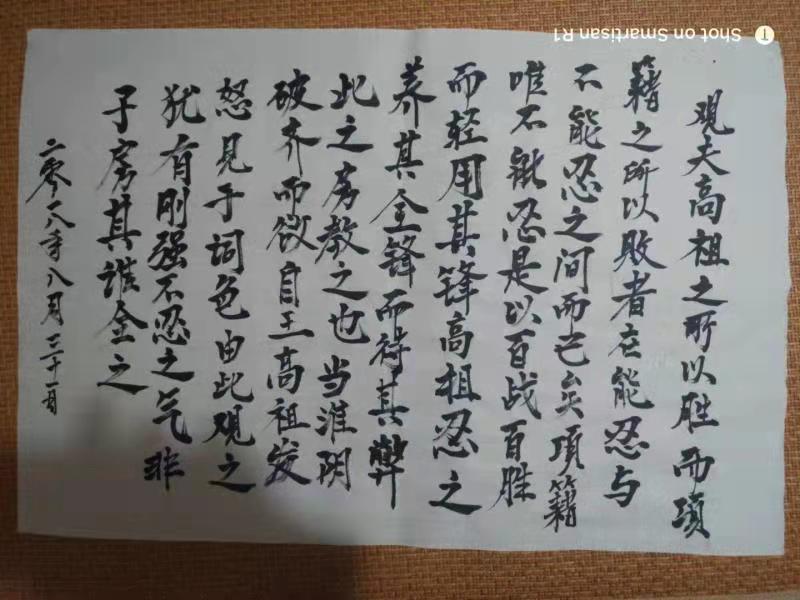 观夫高祖之所以胜而项
籍之所以败者在能忍与
不能忍之间而已矣项籍
唯不能忍是以百战百胜
而轻用其锋高祖忍之
养其全锋而待其弊
此之房教之也当淮阴
破齐而欲自王高祖发
怒见于词色由此观之
犹有刚强不忍之气非
子房其谁全之
二零一八年八月三十一日
Shot on Smartisan R1